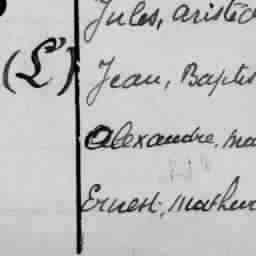 Jules, Aristid
(L') Jean, Baptis
Alexandre, Ma
Ernest, Mathur